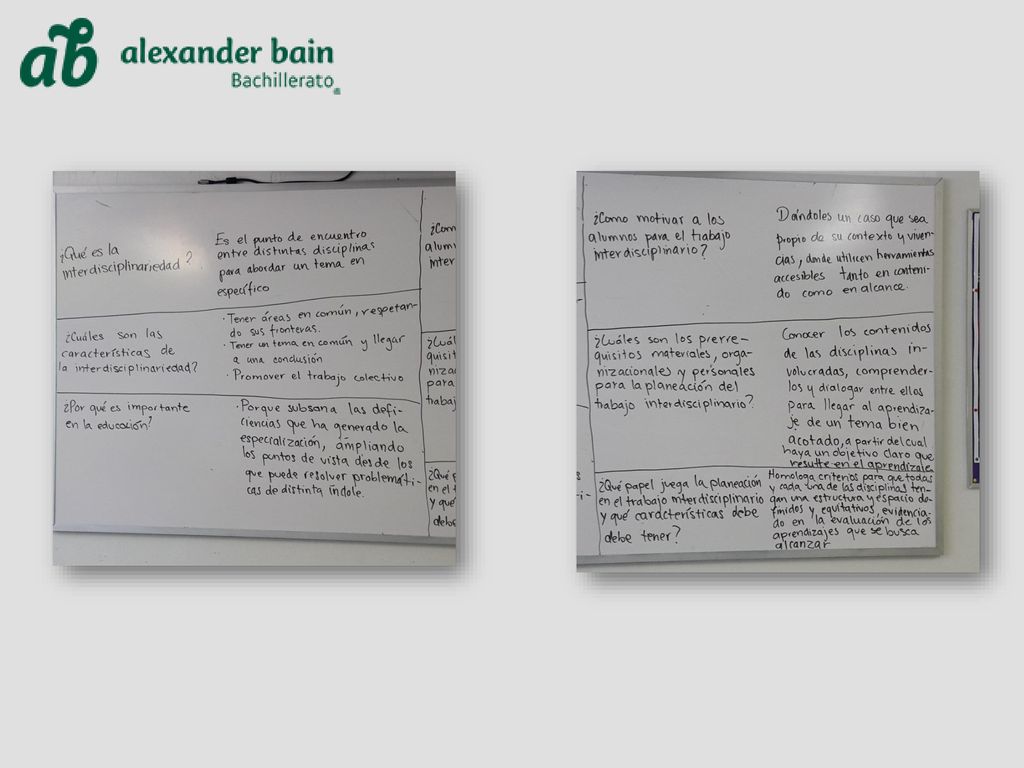 ab
alexander bain
Bachillerato
¿Qué es la
interdisciplinariedad?
Es el punto de encuentro
entre distintas disciplinas
para abordar un tema en
específico
¿Cuáles son las
características de
la interdisciplinariedad?
· Tener áreas en común, respetan-
do sus fronteras.
· Tener un tema en común y llegar
a una conclusión
· Promover el trabajo colectivo
¿Por qué es importante
en la educación?
· Porque subsana las defi-
ciencias que ha generado la
especialización, ampliando
los puntos de vista desde los
que puede resolver problemáti-
cas de distinta índole.
¿Com
alumn
inter
¿Cuál
quisit
nizac
para
trabaj
¿Qué p
en el t
y qué
debe
¿Como motivar a los
alumnos para el trabajo
interdisciplinario?
Dándoles un caso que sea
propio de su contexto y viven-
cias, donde utilicen herramientas
accesibles tanto en conteni-
do como en alcance.
¿Cuáles son los prerre-
quisitos materiales, orga-
nizacionales y personales
para la planeación del
trabajo interdisciplinario?
Conocer los contenidos
de las disciplinas in-
volucradas, comprender-
los y dialogar entre ellos
para llegar al aprendiza-
je de un tema bien
acotado, a partir del cual
haya un objetivo claro que
resulte en el aprendizaje
¿Qué papel juega la planeación
en el trabajo interdisciplinario
y qué características debe
debe tener?
Homologa criterios para que todas
y cada una de las disciplinas ten-
gan una estructura y espacio de-
finidos y equitativos, evidencia-
do en la evaluación de los
aprendizajes que se busca
alcanzar